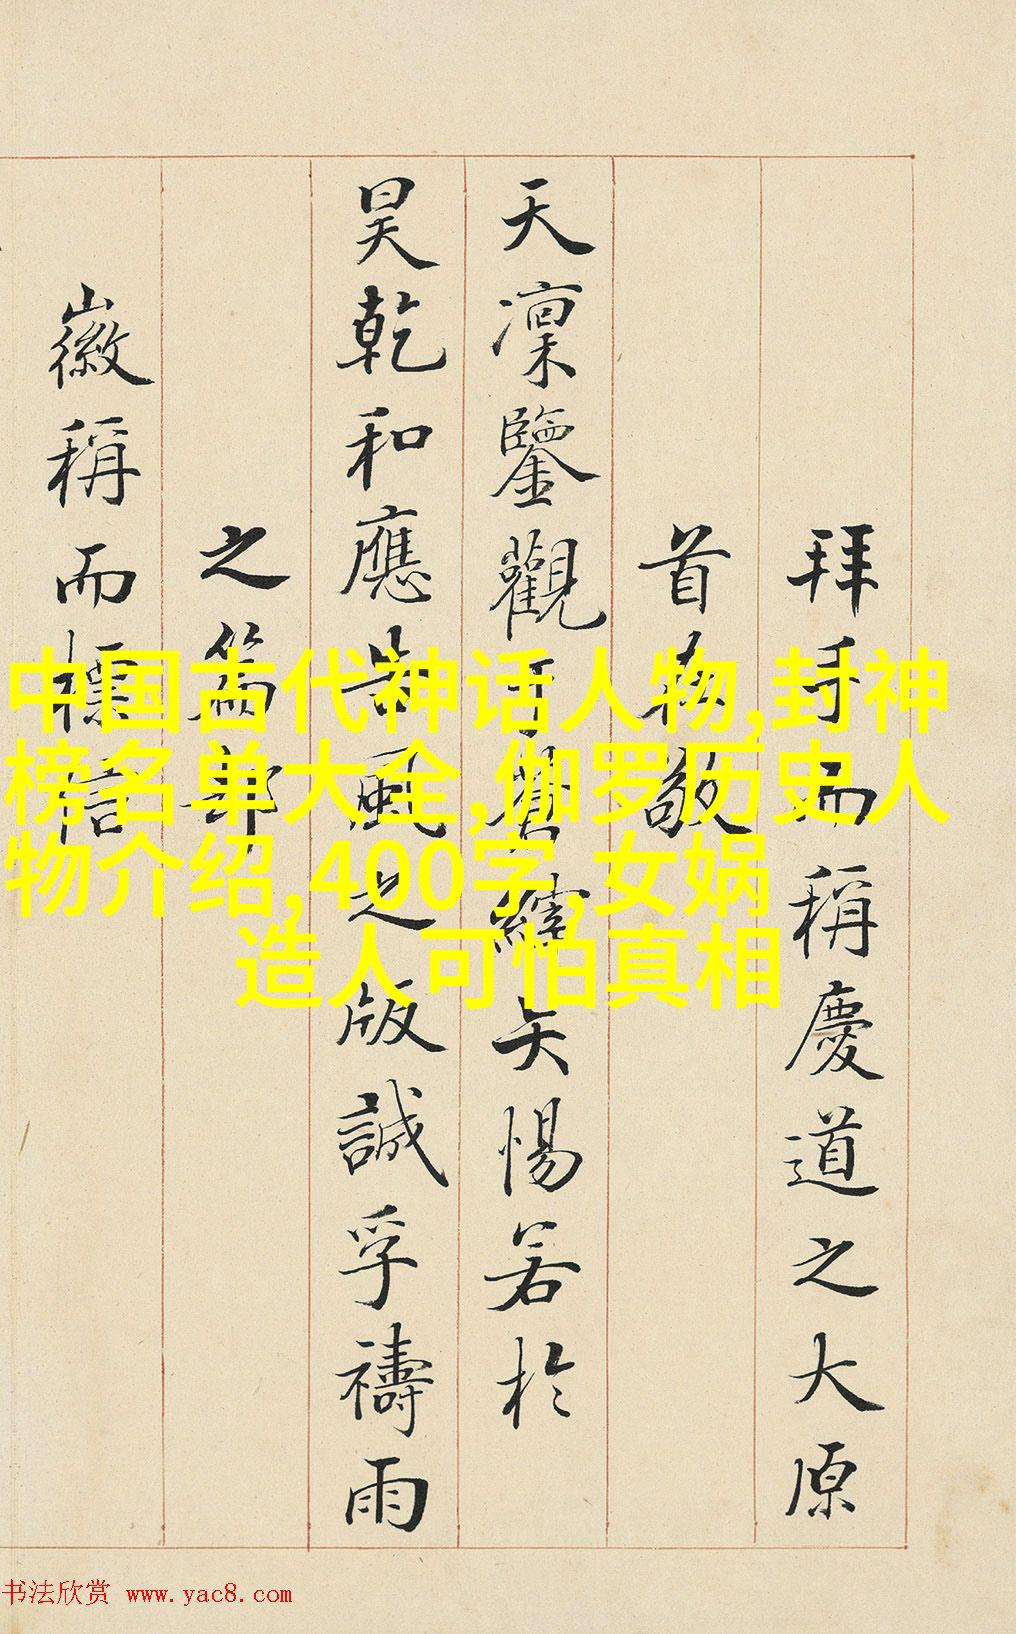 拜手而稱慶道之大原
首在敬
天凛鑒觀于蒼縡矢惕若於
昊乾和應占風之版誠孚禱雨
之篇
徽稱而標
中国古代神话人物,封神
榜名单大全,伽罗历史人
物介绍,400字,女娲
造人可怕真相
书法欣赏 www.yac8.com